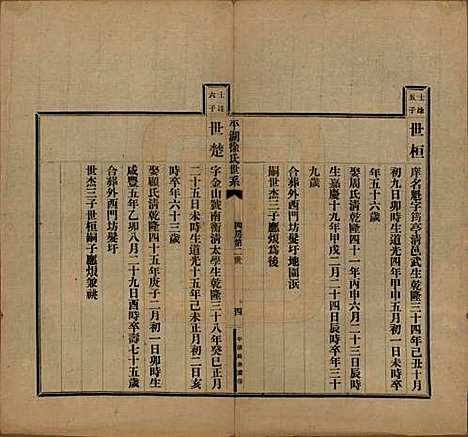 士洤
五子
世桓
庠名魁字筠亭清邑武生乾隆三十四年己丑十月
初九日卯時生道光四年甲申五月初一日未時卒
年五十六歲
娶周氏清乾隆四十一年丙申六月二十三日辰時
生嘉慶十九年甲戌二月二十四日辰時卒年三十
九歲
合葬外西門坊髮圩地園浜
嗣世杰三子應煩為後
平湖徐氏世系
四房第二世
四
士洤
六子
世楚
字金山號南衡清太學生乾隆三十八年癸巳正月
二十五日未時生道光十五年乙未正月初二日亥
時卒年六十三歲
娶顧氏清乾隆四十五年庚子二月初一日卯時生
咸豐五年乙卯八月二十九日酉時卒壽七十五歲
合葬外西門坊髮圩
世杰三子世桓嗣子應煩兼祧